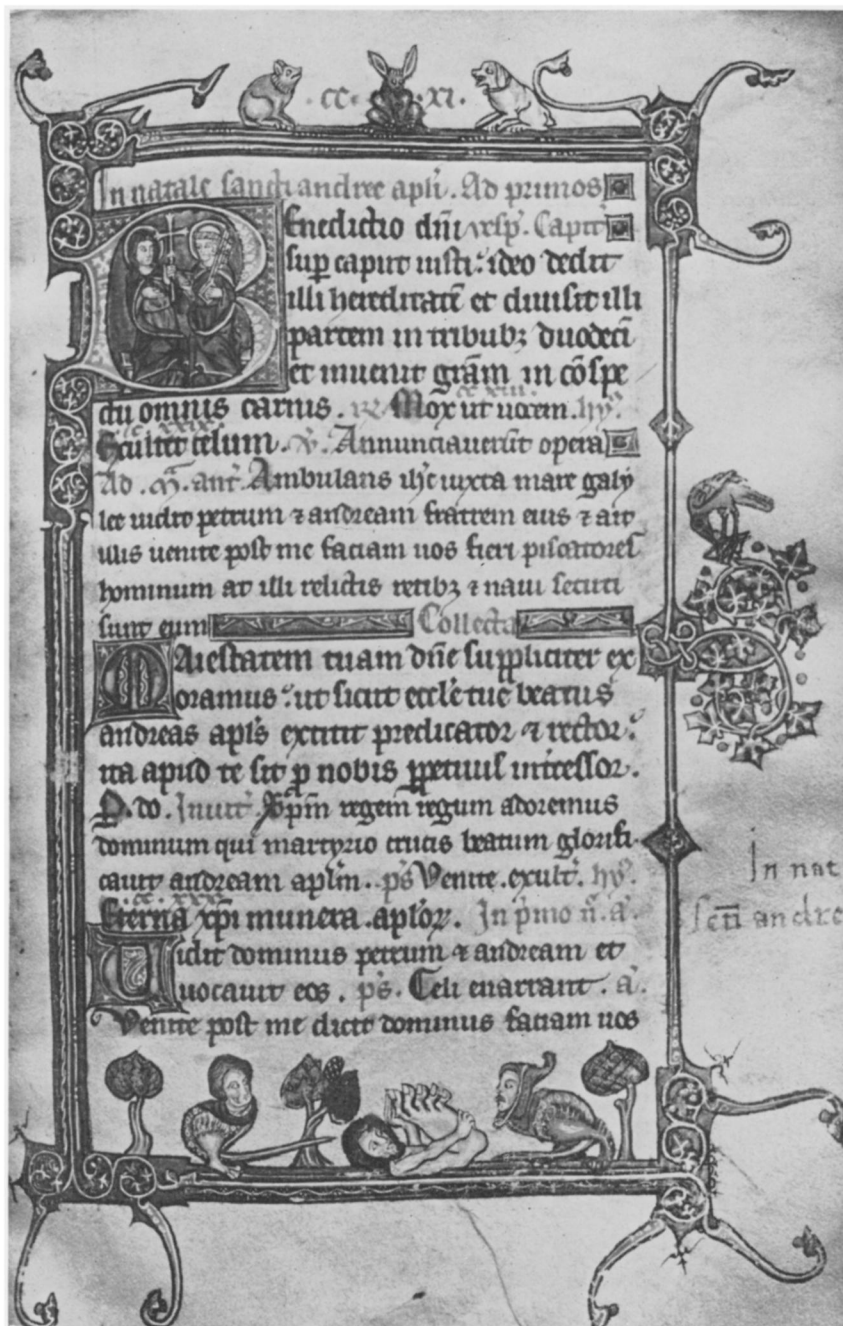 ·cc· ·xi·
In natale sancti andree apl'i. Ad primos
Benedictio dn̄i vesp̄. Capit'
sup caput iusti: ideo dedit
illi hereditatē et diuisit illi
partem in tribubꝫ duodecī
et inuenit grām in cōspe
ctu omnis carnis. ℟ Mox ut uocem. hy̅.
Exultet celum. ℣. Annunciauerūt opera
Ad .m̄. ant'. Ambulans ih̄c iuxta mare galy
lee uidit petrum ⁊ andream fratrem eius ⁊ ait
illis uenite post me faciam uos fieri piscatores
hominum at illi relictis retibꝫ ⁊ naui secuti
sunt eum Collecta
Maiestatem tuam dn̄e suppliciter ex
oramus: ut sicut eccl'e tue beatus
andreas apl's extitit predicator ⁊ rector:
ita apud te sit ꝑ nobis ꝑpetuus int'cessor.
P. do. Inuit'. xp̄m regem regum adoremus
dominum qui martyrio crucis beatum glorifi
cauit andream apl'm. p̄s Venite. exult'. hy̅.
Eterna xp̄i munera. apl'oꝝ. In p'mo n̄. a'.
Uidit dominus petrum ⁊ andream et
uocauit eos. p̄s. Celi enarrant. a'.
Venite post me dicit dominus faciam uos
In nat
sc̄ti andre